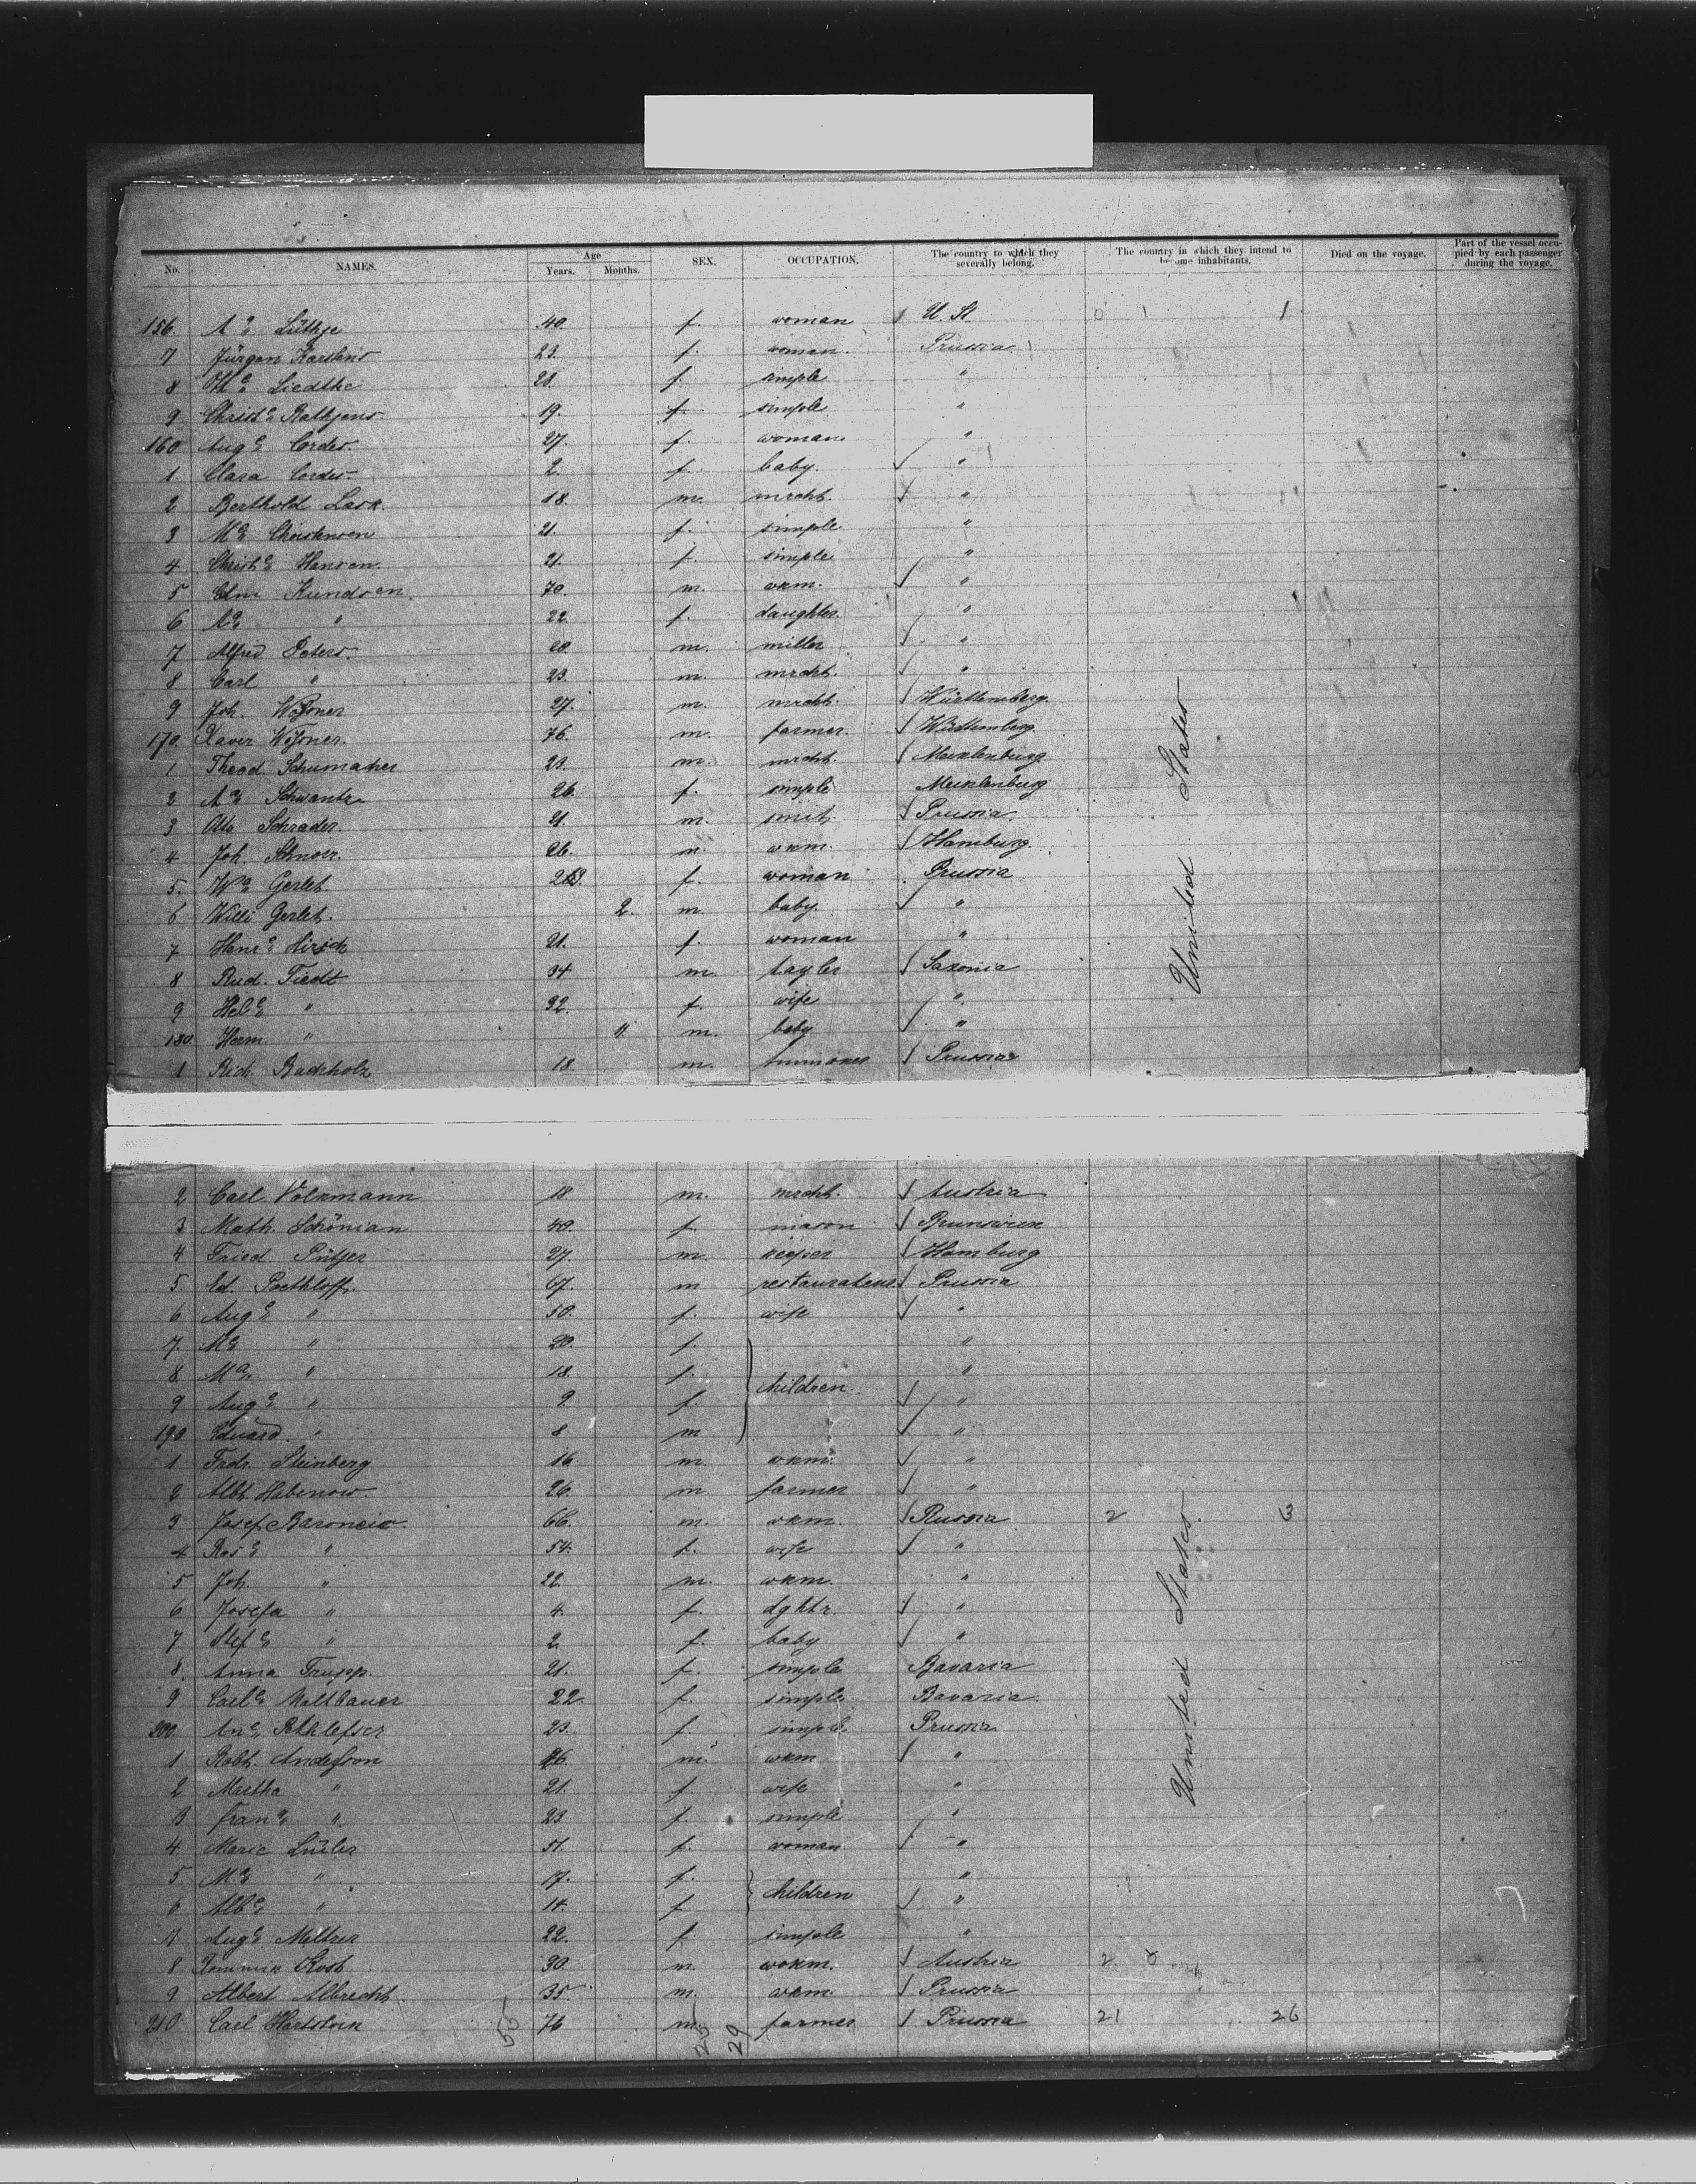 No. NAMES. Age Years. Months. SEX. OCCUPATION. The country to which they severally belong. The country in which they intend to become inhabitants. Died on the voyage. Part of the vessel occupied by each passenger during the voyage.
156 Aᵃ Lüthje 40. f. woman U. St. 0 1 1
7 Jürgen Karstens 23. f. woman. Prussia
8 Liedtke 28. f. simple "
9 Christᵉ Rathjens 19. f. simple "
160 Augᵉ Cordes. 27. f. woman "
1 Clara Cordes. 2. f. baby. "
2 Berthold Lask. 18. m. mrcht. "
3 Mᵃ Christensen 21. f. simple "
4 Christᵉ Hansen. 21. f. simple "
5 Kundsen 70. m. wkm. "
6 Aᵉ " 22. f. daughter. "
7 Alfred Peters. 20. m. miller "
8 Carl " 23. m. mrcht. "
9 Joh. 27. m. mrcht. Württemberg.
170. Xaver 76. m. farmer. Württemberg
1 Theod. Schumaher 23. m. mrcht. Mecklenburg
2 Aᵃ Schwantz 26. f. simple Mecklenburg
3 Otto Schrader. 21. m. smit. Prussia.
4 Joh. 26. m. wkm. Hamburg.
5. Wᵃ Gerlet. f. woman Prussia
6 Willi Gerlet. 2. m. baby. "
7 Henrᵉ Hirsch 21. f. woman "
8 Rud. Tiedt 34 m. tayler Saxonia
9 Helᵉ " 32. f. wife "
180. Herm. " 11. m. baby "
1 Rich. Buchholz 18. m. Prussia
United States
2 Carl Volkmann 18 m. mrcht. Austria
3 Math. Schönian 40. f. mason Brunswick
4 Fried Pütjer 27. m. keeper Hamburg
5. Ed. Poethloff. 67. m restaurateur. Prussia
6 Augᵉ " 50. f. wife "
7. Mᵉ " 20. f. "
8 Mᵃ " 18. f. children. "
9 Augᵉ " 9 f. "
190 Eduard. " 8 m "
1 Frdr. Steinberg 16 m. wkm. "
2 Albt. Habenow. 26. m. farmer "
3 Josef Baroncio 66. m. wkm. Russia 2 3
4 Rosᵉ " 54. f. wife "
5 Joh. " 22. m. wkm. "
6 Josefa " 4. f. dghtr. "
7 Stefᵉ " 2 f. baby "
8. Anna Trupp. 21. f. simple Bavaria
9 Carlᵉ Maltbauer 22. f. simple Bavaria
200. Anᵉ 23. f. simple Prussia
1 Robt. Anderson 26. m. wkm "
2 Martha " 21. f. wife "
3 Franᵉ " 23 f. simple "
4 Marie 51. f. woman "
5 Mᵉ " 17. f. children "
6 Albᵉ " 14. f "
7 Augᵉ Meltzer 22. f. simple "
8 Dominik Kost 30. m. wokm. Austria 2
9 Albert Albrecht. 35. m. wkm. Prussia
210 Carl Hartstock 76 m. farmer Prussia 21 26
United States.
55
29